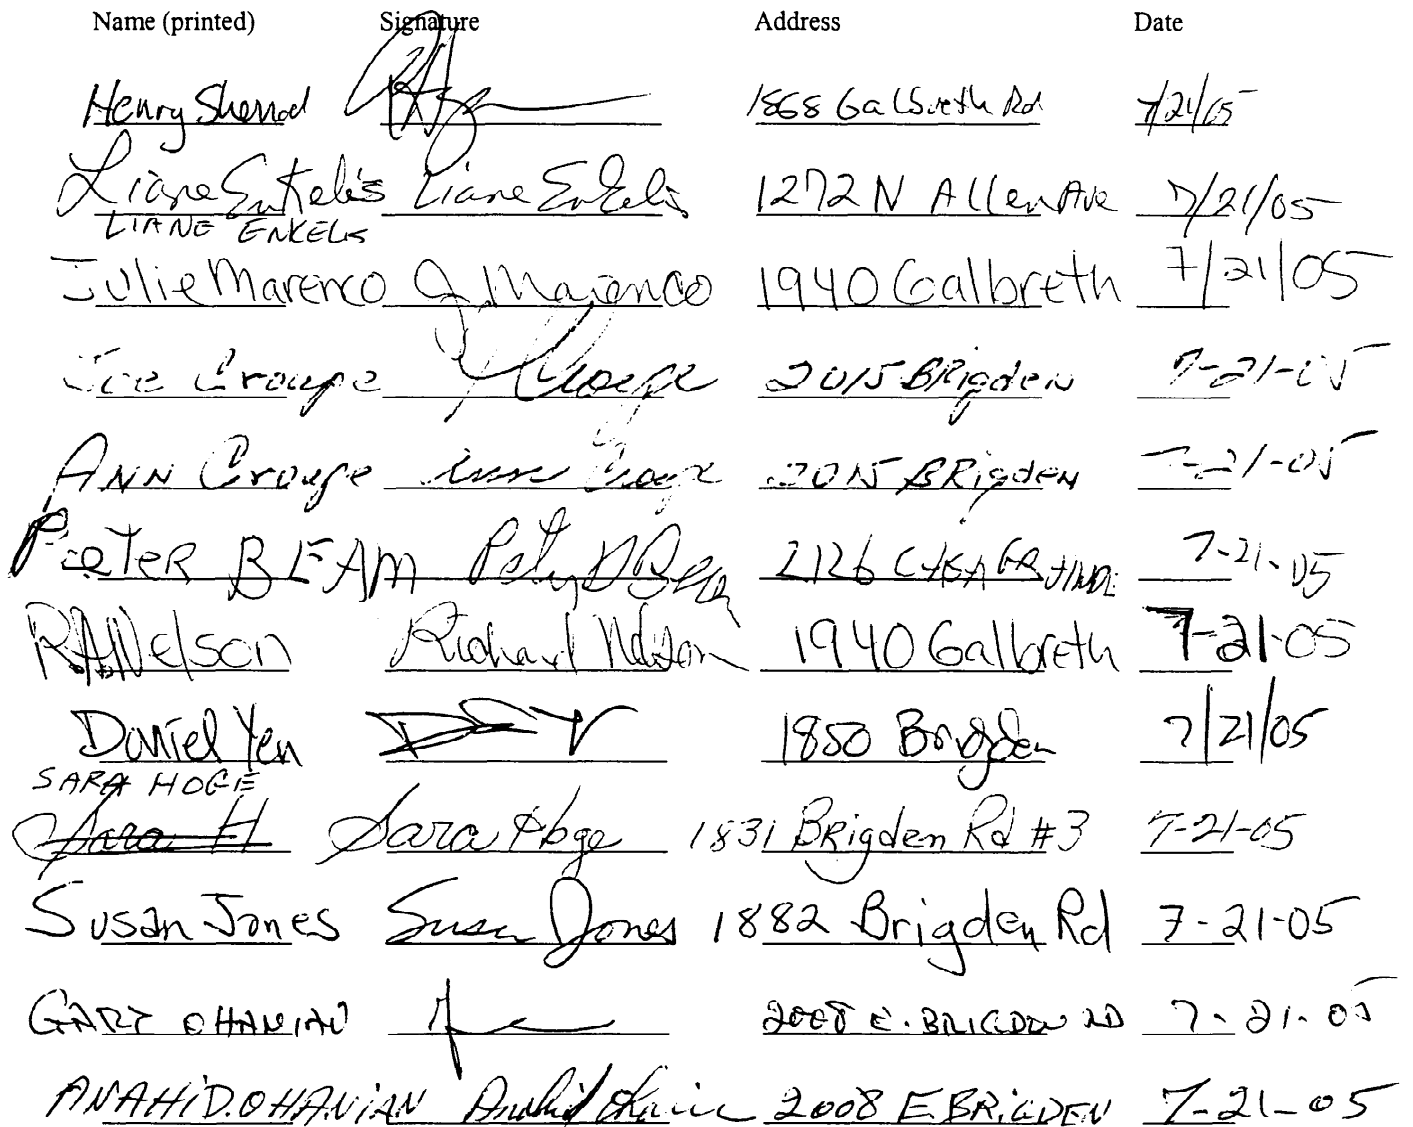 Name (printed) Signature Address Date
Henry Sherrod 1868 Galbreth Rd 7/21/05
Liane Enkelis Liane Enkelis 1272 N Allen Ave 7/21/05
LIANE ENKELIS
Julie Marenco J. Marenco 1940 Galbreth 7/21/05
Joe Croupe Croupe 2015 BRigden 7-21-05
ANN Croupe Croupe 2015 BRigden 7-21-05
PeTeR BEAM Peter D Beam 2126 7-21-05
R.H. Nelson Richard Nelson 1940 Galbreth 7-21-05
Daniel Yen 1850 Brigden 7/21/05
SARA HOGE
Sara H Sara Hoge 1831 Brigden Rd #3 7-21-05
Susan Jones Susan Jones 1882 Brigden Rd 7-21-05
GARY OHANIAN 2008 E. BRIGDEN RD 7-21-05
ANAHID.OHANIAN Anahid Ohanian 2008 E. BRIGDEN 7-21-05